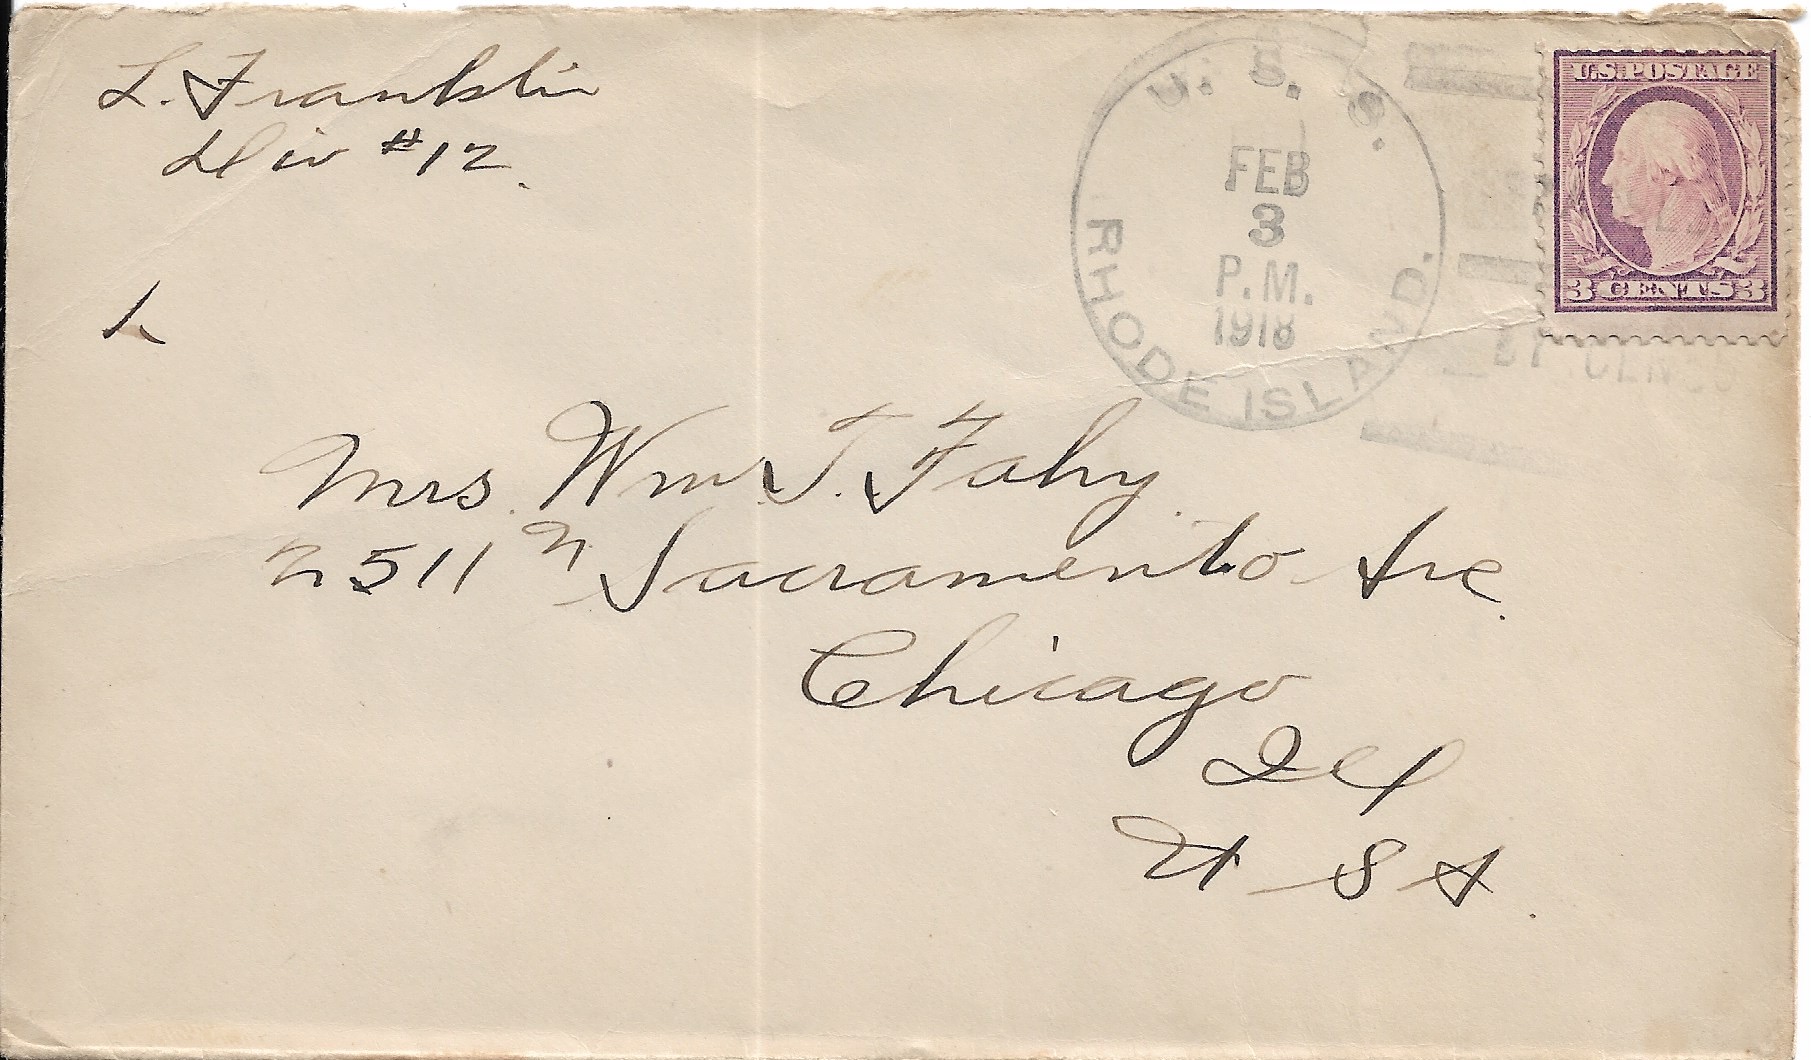 L. Franklin
Div #12.
U. S. S.
RHODE ISLAND.
FEB
3
P.M.
1918
U.S.POSTAGE
3 CENTS 3
Mrs. Wm. T. Fahy.
2511 N Sacramento Ave.
Chicago
Ill
U S A.